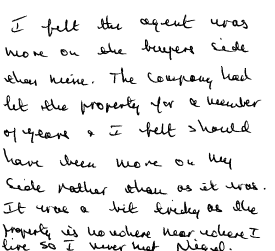 I felt the agent was
more on the buyers side
than mine. The Company had
let the property for a number
of years & I felt should
have been more on my
side rather than as it was.
It was a bit tricky as the
property is nowhere near where I
live so I never met Nigel.